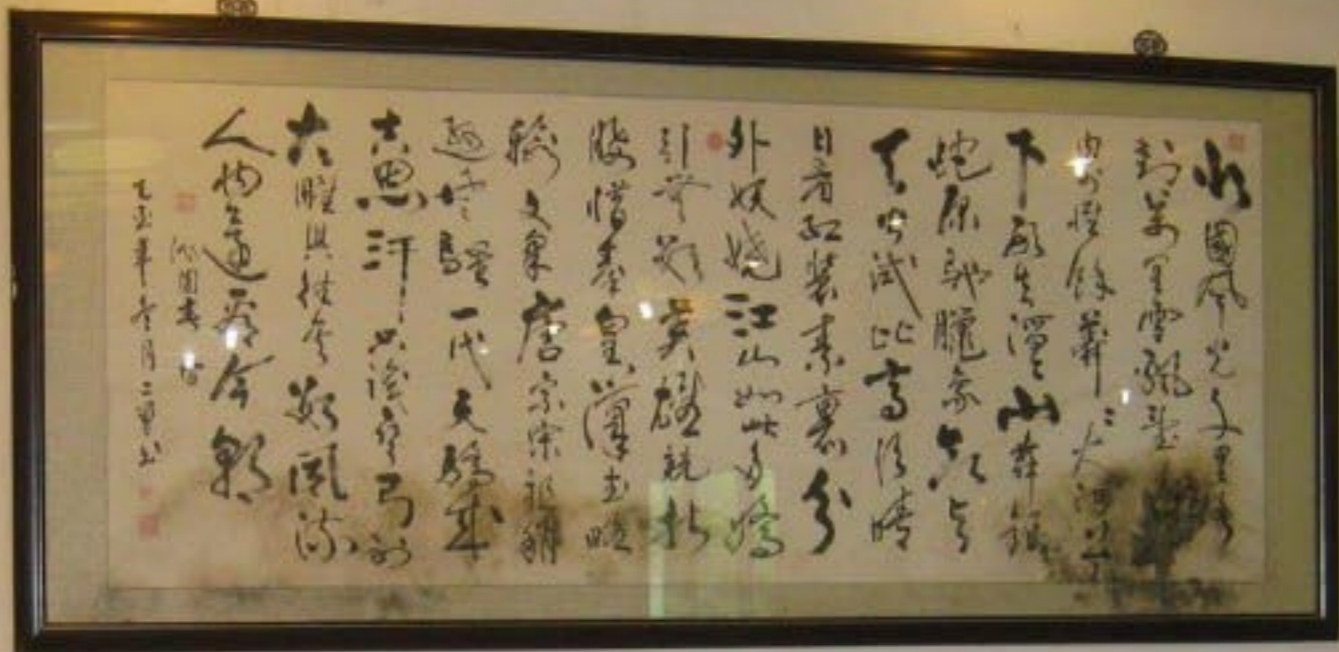 北國風光千里冰
封萬里雪飄望
內外惟餘莽〻大河上
下頓失滔〻山舞銀
蛇原馳臘象欲與
天公試比高須晴
日看紅裝素裹分
外妖嬈江山如此多嬌
引無數英雄競折
腰惜秦皇漢武略
輸文采唐宗宋祖稍
遜風騷一代天驕成
吉思汗只識彎弓射
大雕俱往矣數風流
人物還看今朝
沁園春雪
年冬月書